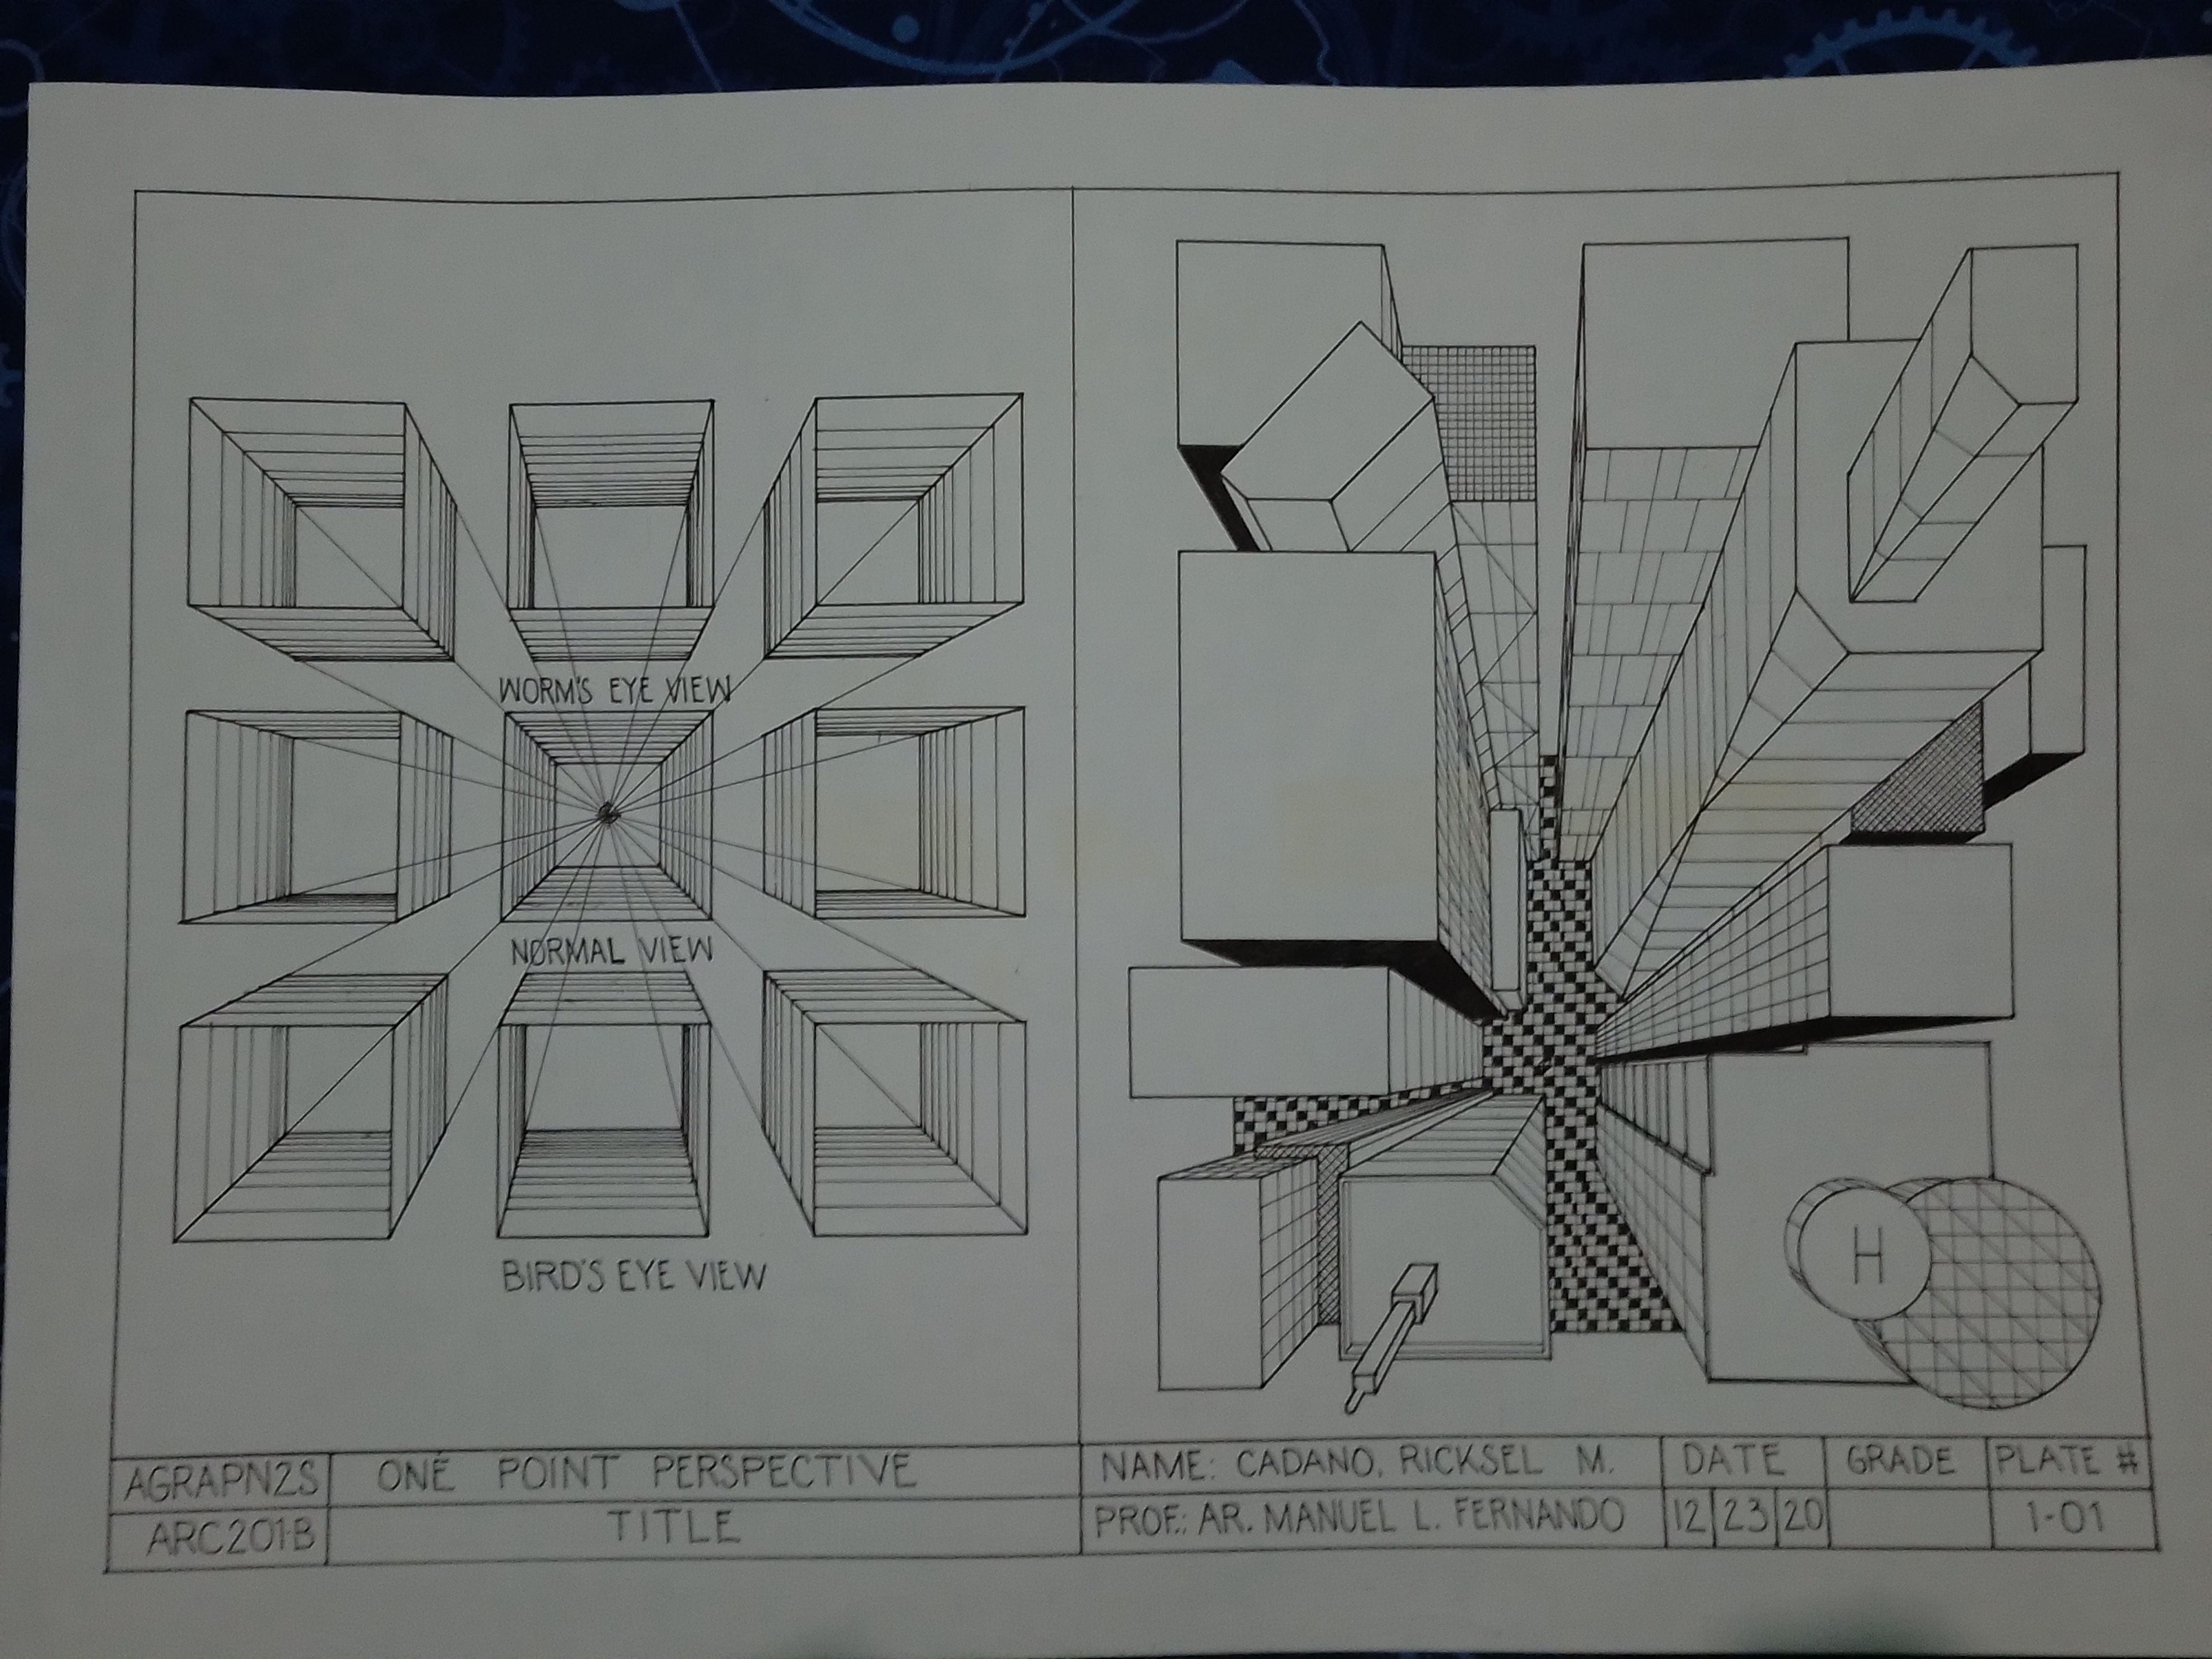 WORM'S EYE VIEW
NORMAL VIEW
BIRD'S EYE VIEW
H
AGRAPN2S
ONE POINT PERSPECTIVE
NAME: CADANO, RICKSEL M.
DATE
GRADE
PLATE #
ARC201-B
TITLE
PROF.: AR. MANUEL L. FERNANDO
12 23 20
1-01